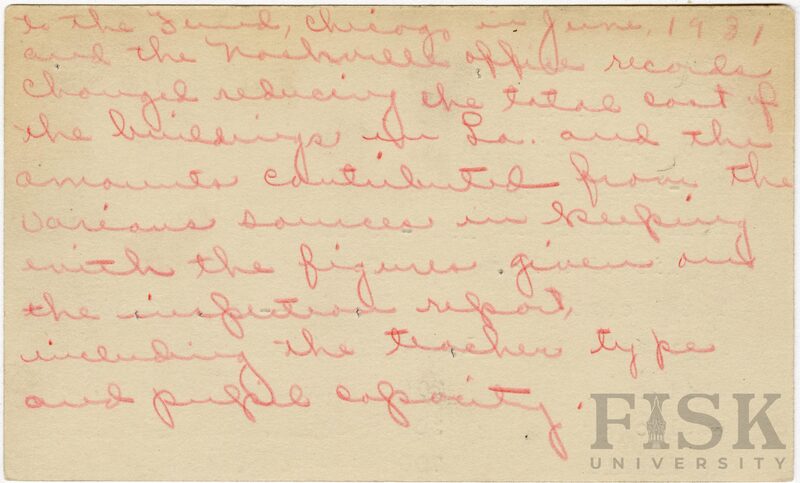 to the Fund, Chicago in June, 1931
and the Nashville office records
changed reducing the total cost of
the buildings in La. and the
amounts contributed from the
various sources in keeping
with the figures given on
the inspection report,
including the teacher type
and pupil capacity.
FISK
UNIVERSITY